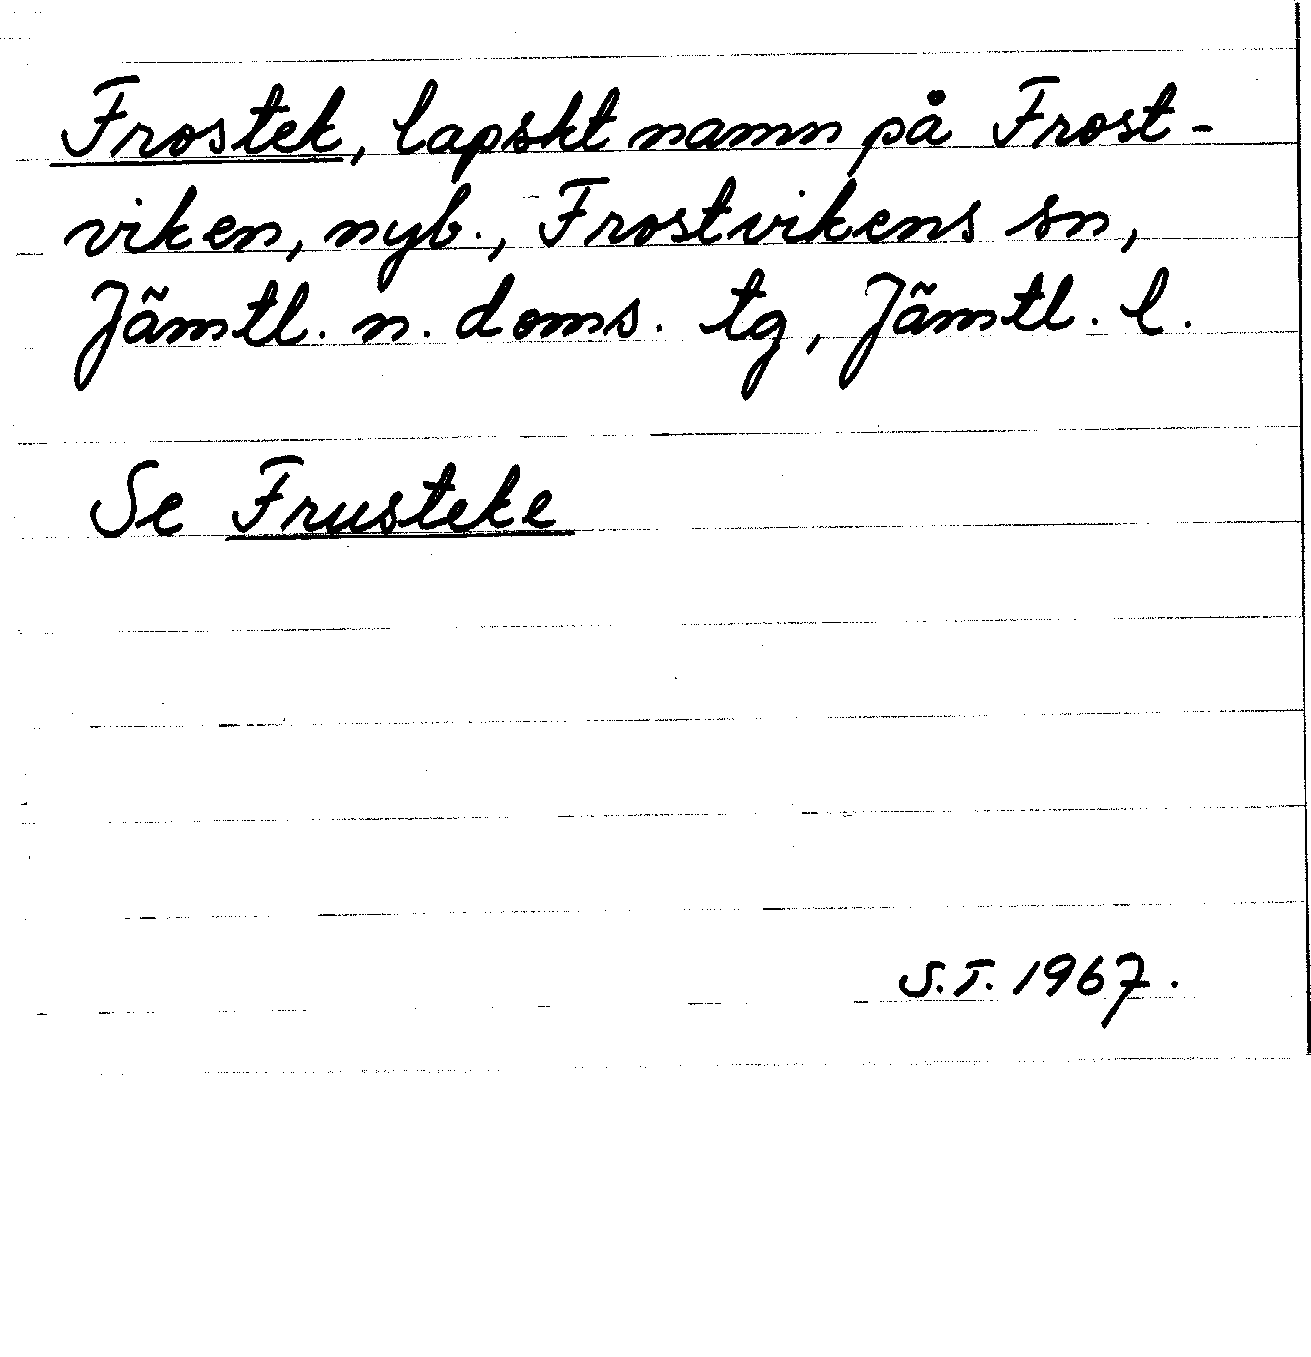 Frostek, lapskt namn på Frost-
viken, nyb., Frostvikens sn,
Jämtl. n. doms. tg, Jämtl. l.
Se Frusteke
S.T. 1967.